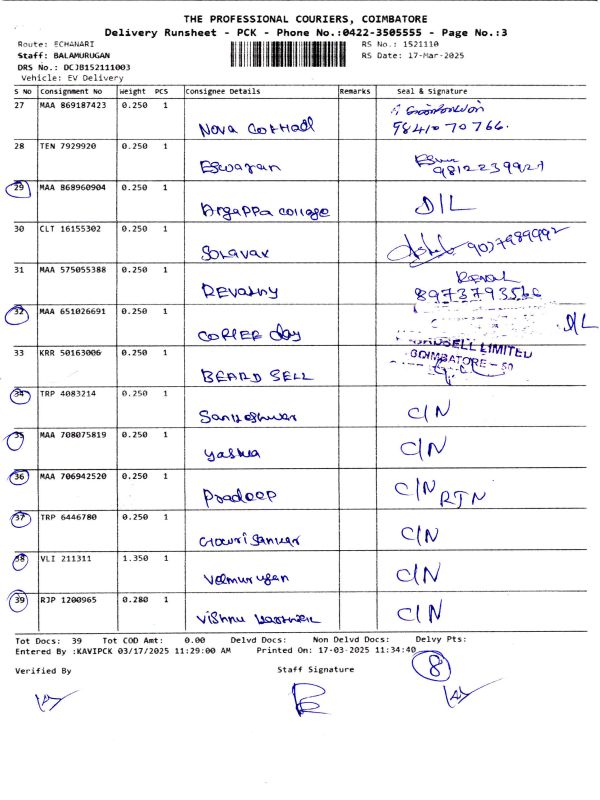 THE PROFESSIONAL COURIERS, COIMBATORE
Delivery Runsheet - PCK - Phone No.:0422-3505555 - Page No.:3
Route: ECHANARI
RS No.: 1521110
Staff: BALAMURUGAN
RS Date: 17-Mar-2025
DRS No.: DCJB152111003
Vehicle: EV Delivery
S No Consignment No Weight PCS Consignee Details Remarks Seal & Signature
27 MAA 869187423 0.250 1
Nova 9841070766.
28 TEN 7929920 0.250 1
Eswaran 9812239927
29 MAA 868960904 0.250 1
college D/L
30 CLT 16155302 0.250 1
9037989992
31 MAA 575055388 0.250 1
REVATHY 8973793566
32 MAA 651026691 0.250 1
COFFEE day D/L
33 KRR 50163006 0.250 1
LIMITED
COIMBATORE - 50
BEARD SELL
34 TRP 4083214 0.250 1
Sankeshwar C/N
35 MAA 708075819 0.250 1
C/N
36 MAA 706942520 0.250 1
Pradeep C/N RTN
37 TRP 6446780 0.250 1
Gowri Sankar C/N
38 VLI 211311 1.350 1
Velmurugan C/N
39 RJP 1200965 0.280 1
Vishnu C/N
Tot Docs: 39 Tot COD Amt: 0.00 Delvd Docs: Non Delvd Docs: Delvy Pts:
Entered By :KAVIPCK 03/17/2025 11:29:00 AM Printed On: 17-03-2025 11:34:40
8
Verified By Staff Signature